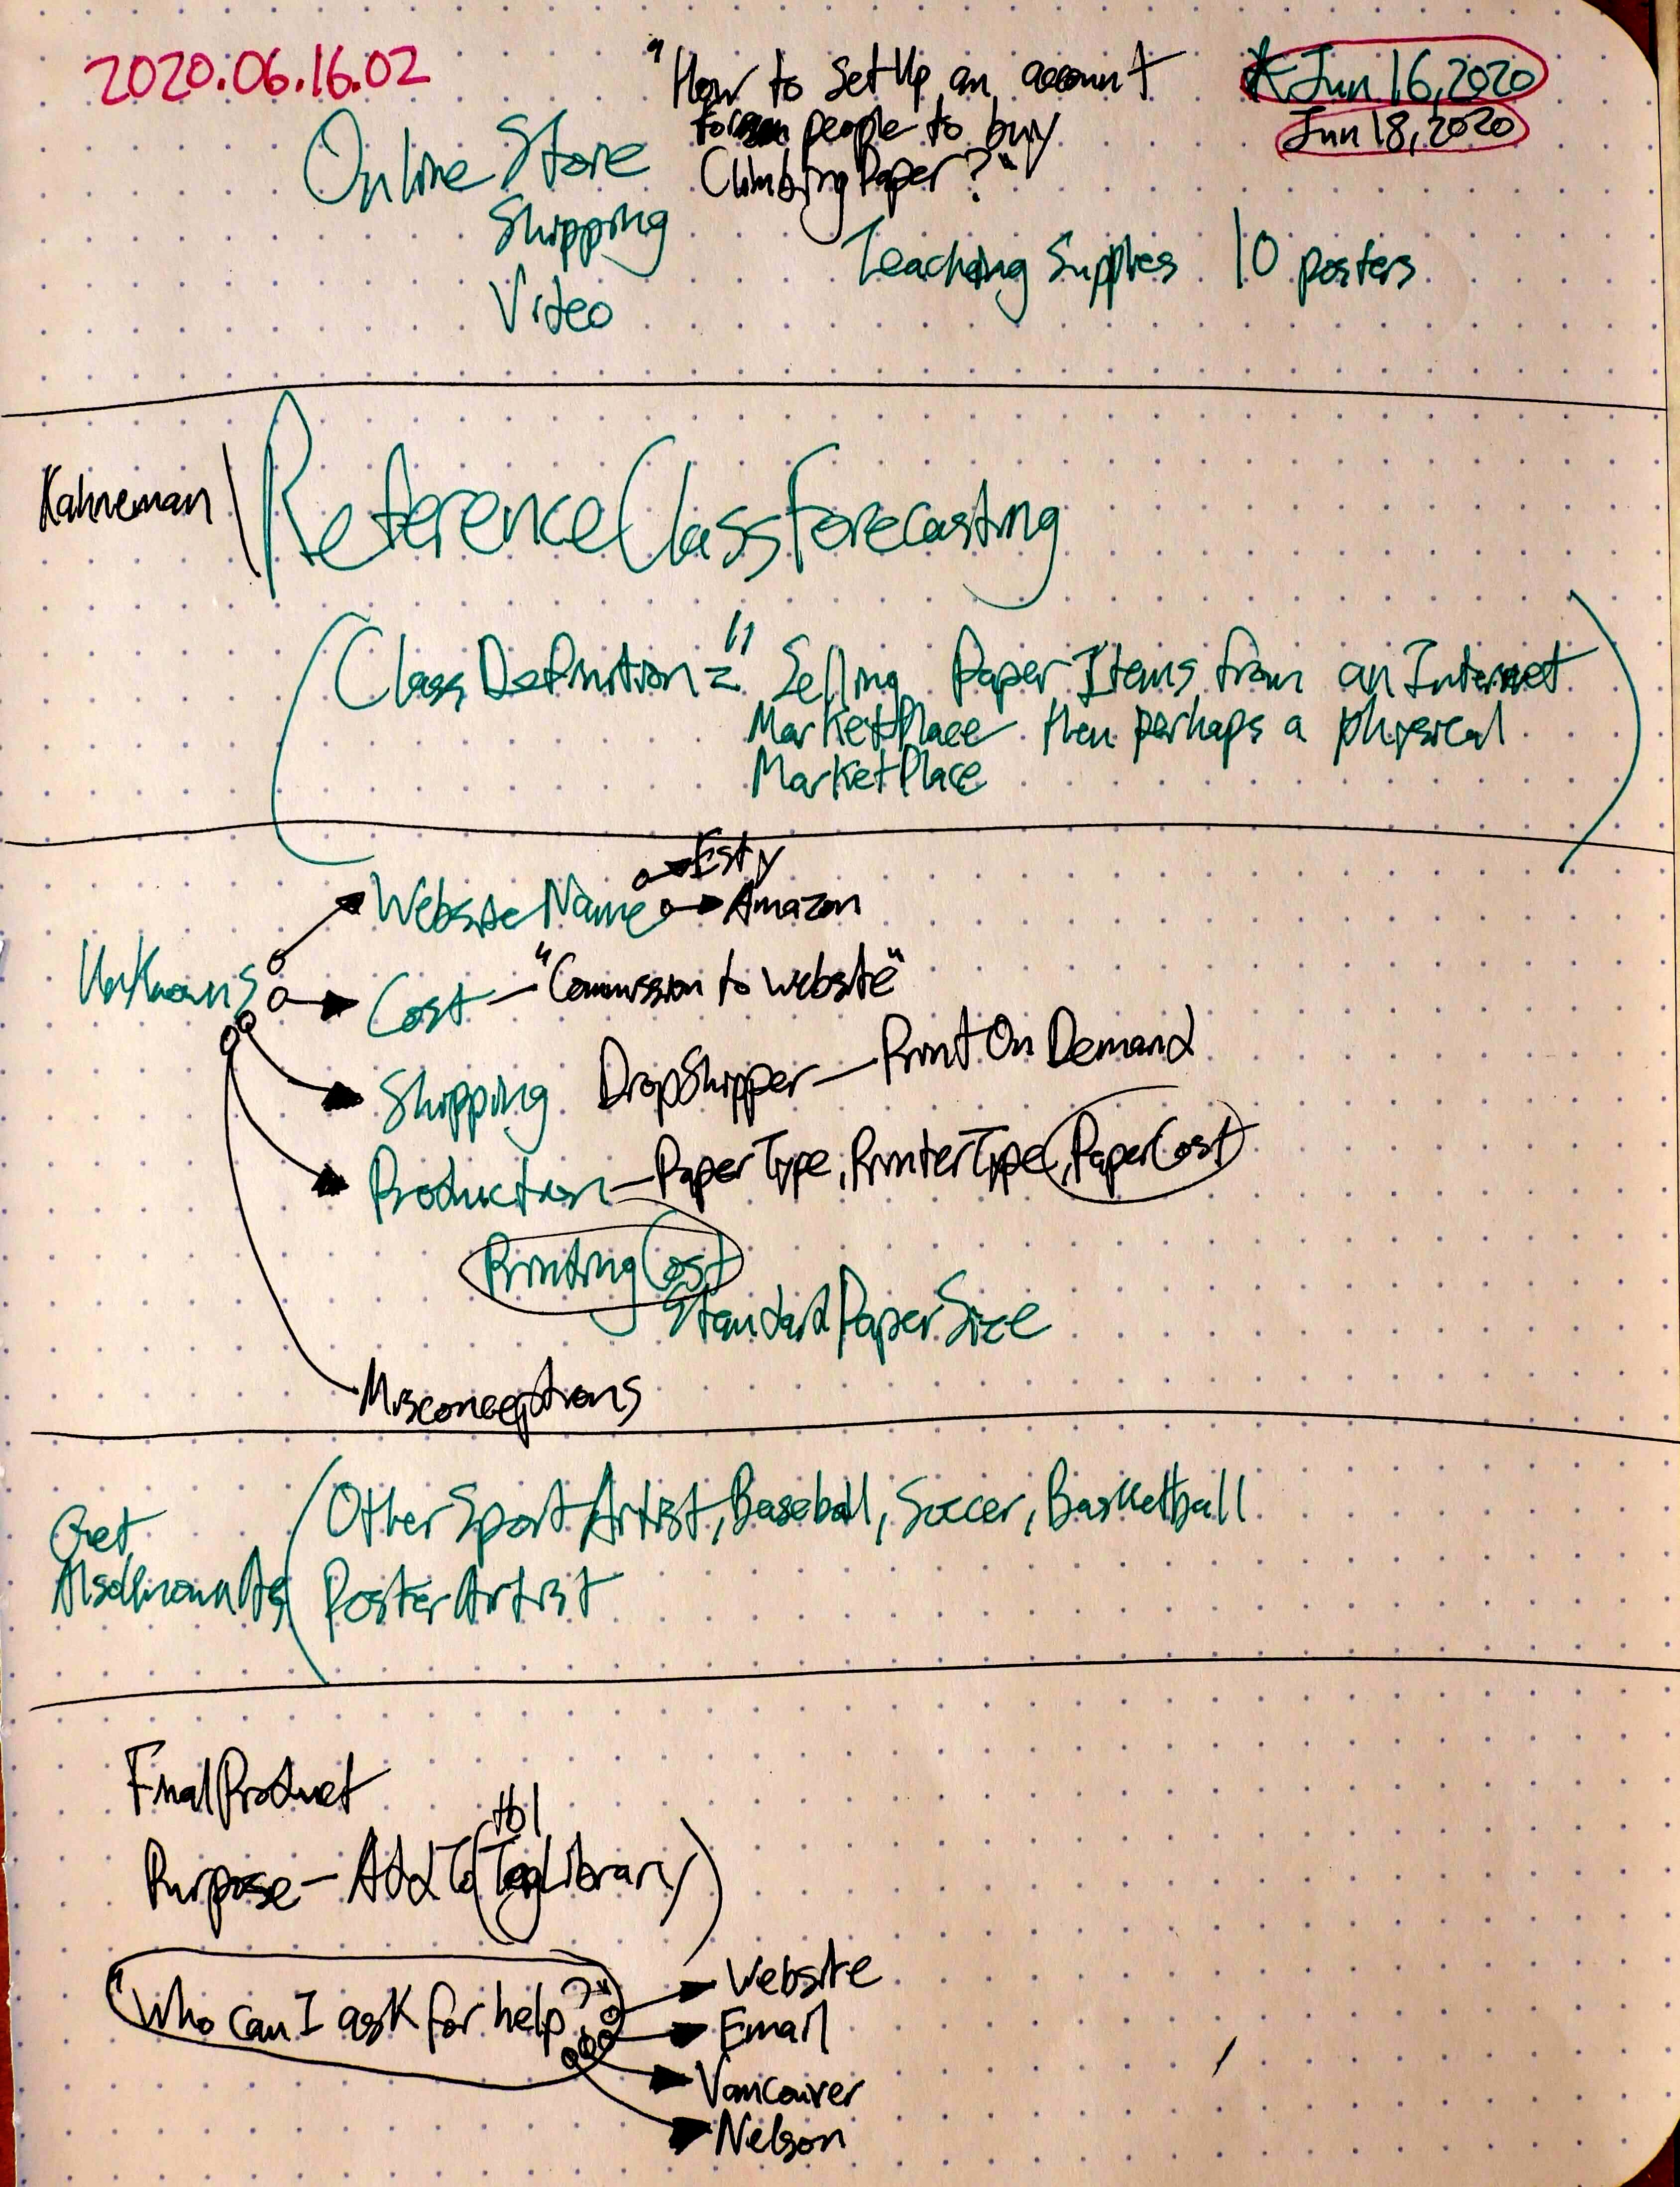 2020.06.16.02
"How to SetUp an account
for people to buy
ClimbingPaper?"
*Jun 16,2020
Jun 18,2020
Online Store
Shipping
Video
Teaching Supplies 10 posters
Kahneman
ReferenceClassForecasting
ClassDefinition = "Selling Paper Items from an Internet
MarketPlace then perhaps a physical
MarketPlace
Unknowns
WebsiteName
Esty
Amazon
Cost - "Commission to website"
Shipping DropShipper - Print On Demand
Production - PaperType, PrinterType, PaperCost
PrintingCost
StandardPaperSize
Misconceptions
Get
AlsoKnownAs
OtherSportArtist, Baseball, Soccer, Basketball
PosterArtist
FinalProduct
tbl
Purpose - AddTo(TagLibrary)
"Who can I ask for help?"
Website
Email
Vancouver
Nelson